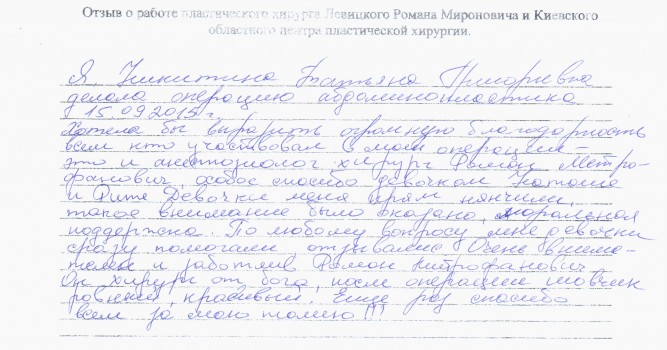 Отзыв о работе пластического хирурга Левицкого Романа Мироновича и Киевского
областного центра пластической хирургии.
Я, Никитина Татьяна Григорьевна
делала операцию абдоминопластика
15.09.2015 г.
Хотела бы выразить огромную благодарность
всем кто участвовал с моей операцией –
это и анестозиолог хирург Роман Метро-
фанович, особое спасибо девочкам Наташе
и Рите Девочки меня прям нянчили,
такое внимание было оказано, моральная
поддержка. По любому вопросу мне девочки
сразу помогали, отзывались Очень внима-
телен и заботлив Роман Митрофанович,
Он хирург от бога, после операции шовчик
ровный, красивый. Еще раз спасибо
всем за мою талию!!!